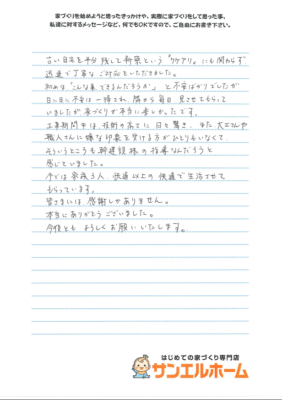 家づくりを始めようと思ったきっかけや、実際に家づくりをして思った事、
私達に対するメッセージなど、何でもOKですので、ご自由にお書き下さい。
古い自宅を半分残して新築という"ワケアリ"にも関わらず
迅速で丁寧なご対応をいただきました。
初めは"こんな事できるんだろうか"と不安ばかりでしたが
日に日に不安は一掃され、隣から毎日見させてもらって
いましたが家づくりが本当に楽しかったです。
工事期間中は、技術の高さに日々驚き、また大工さんや
職人さんに嫌な印象を受ける方がひとりもいなくて
そういうところも
感じていました。
今では家族3人、快適以上の快適で生活させて
もらっています。
皆さまには感謝しかありません。
本当にありがとうございました。
今後とも よろしくお願いいたします。
はじめての家づくり専門店
サンエルホーム